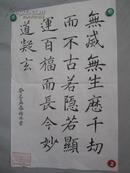 無滅無生歷千劫
而不古若隱若顯
運百福而長今妙
道凝玄